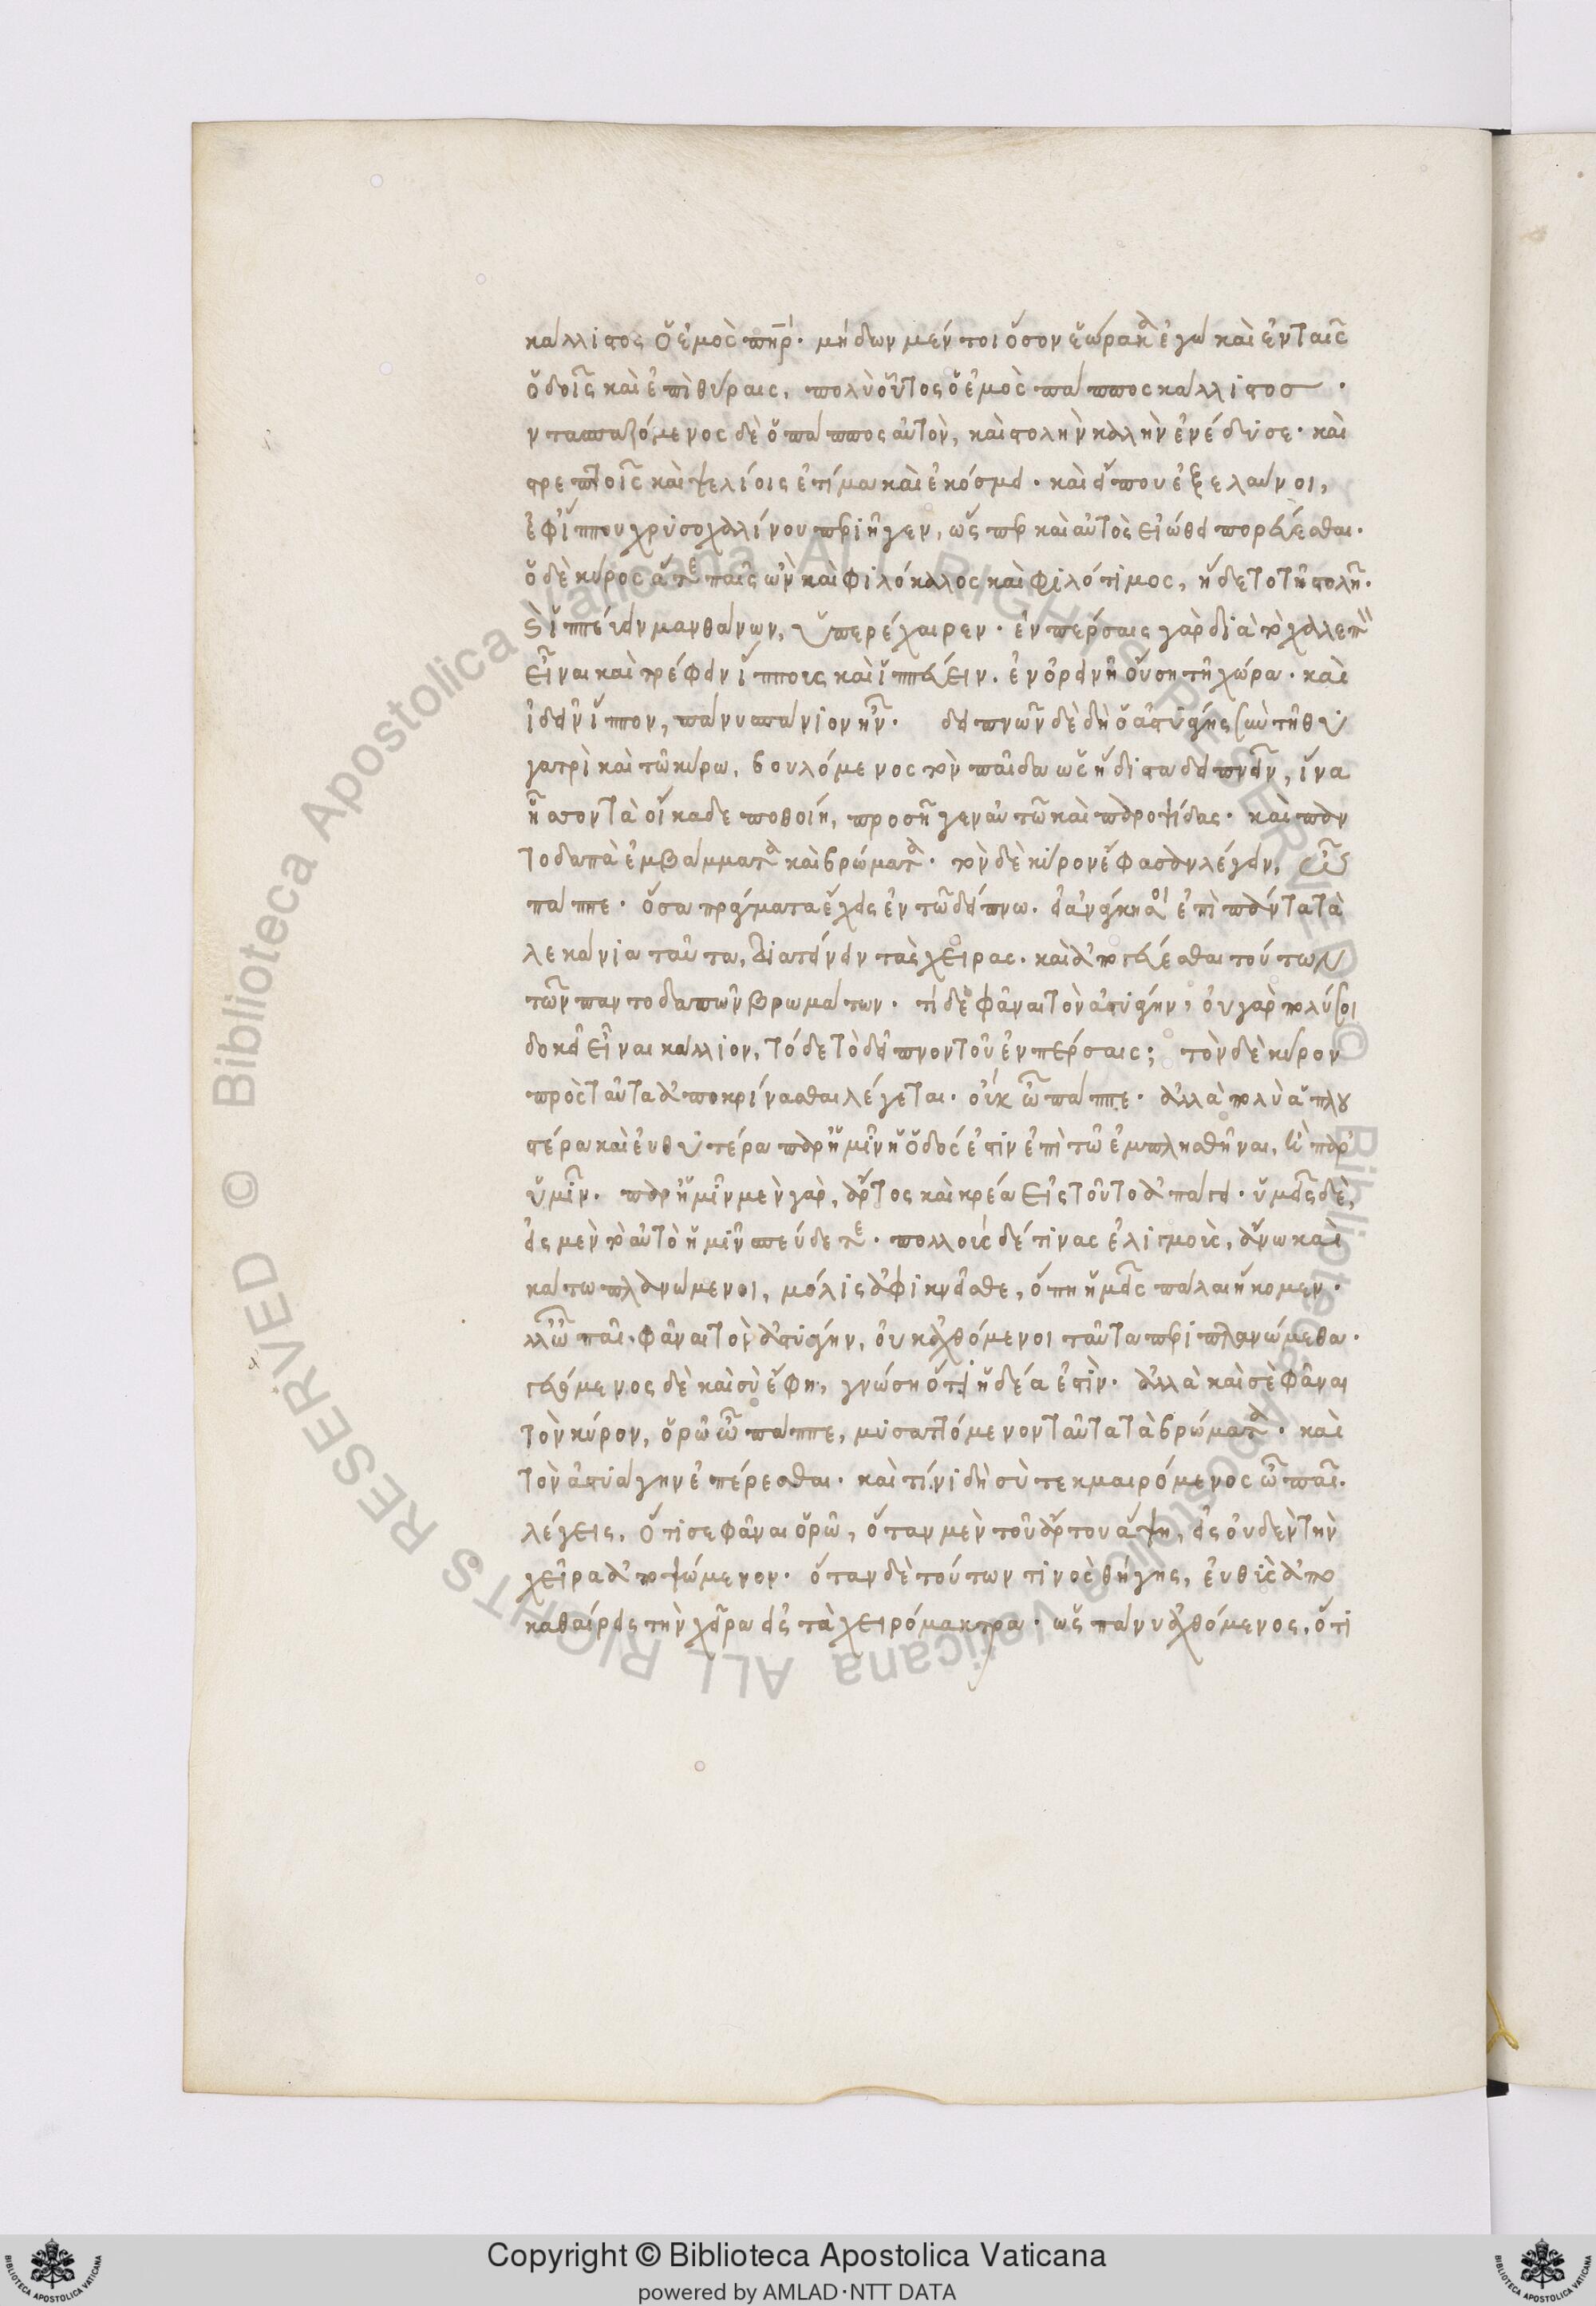 κάλλιστος ὁ ἐμὸς πηρ̅· μήδων μέν τοι ὅσον ἑώρακα ἐγὼ καὶ ἐν ταῖς
ὁδοῖς καὶ ἐπὶ θύραις, πολὺ οὗτος ὁ ἐμὸς πάππος κάλλιστος·
ντασπαζόμενος δὲ ὁ πάππος αὐτὸν, καὶ στολὴν καλὴν ἐνέδυσε· καὶ
στρεπτοῖς καὶ ψελίοις ἐτίμα καὶ ἐκόσμει· καὶ εἴ που ἐξελαύνοι,
ἐφ' ἵππου χρυσοχαλίνου περιῆγεν, ὥσπερ καὶ αὐτὸς εἰώθει πορεύεσθαι·
ὁ δὲ κύρος ἅτε παῖς ὢν καὶ φιλόκαλος καὶ φιλότιμος, ἥδετο τῇ στολῇ·
καὶ ἱππεύειν μανθάνων, ὑπερέχαιρεν· ἐν πέρσαις γὰρ διὰ τὸ χαλεπὸν
εἶναι καὶ τρέφειν ἵππους καὶ ἱππεύειν· ἐν ὀρεινῇ οὔσῃ τῇ χώρα· καὶ
ἰδεῖν ἵππον, πάνυ σπάνιον ἦν· δειπνῶν δὲ δὴ ὁ ἀστυάγης σὺν τῇ θυ
γατρὶ καὶ τῶ κύρω, βουλόμενος τὸν παῖδα ὡς ἥδιστα δειπνεῖν, ἵνα
ἧσσον τὰ οἴκαδε ποθοίη, προσῆγεν αὐτῶ καὶ παροψίδας· καὶ παν
τοδαπὰ ἐμβάμματα καὶ βρώματα· τὸν δὲ κύρον ἔφασαν λέγειν, ὦ
πάππε· ὅσα πράγματα ἔχεις ἐν τῶ δείπνω· εἰ ἀνάγκη σοι ἐπὶ πάντα τὰ
λεκάνια ταῦτα, διατείνειν τὰς χεῖρας· καὶ ἀπογεύεσθαι τούτων
τῶν παντοδαπῶν βρωμάτων· τί δὲ φάναι τὸν ἀστυάγην, οὐ γὰρ πολύ σοι
δοκεῖ εἶναι κάλλιον, τόδε τὸ δεῖπνον τοῦ ἐν πέρσαις; τὸν δὲ κύρον
πρὸς ταῦτα ἀποκρίνασθαι λέγεται· οὐκ ὦ πάππε· ἀλλὰ πολὺ ἁπλου
στέρα καὶ εὐθυτέρα παρ' ἡμῖν ἡ ὁδός ἐστιν ἐπὶ τῶ ἐμπλησθῆναι, ἢ παρ'
ὑμῖν· παρ' ἡμῖν μὲν γὰρ, ἄρτος καὶ κρέα εἰς τοῦτο ἀπάγει· ὑμεῖς δὲ,
εἰς μὲν τὸ αὐτὸ ἡμῖν σπεύδετε· πολλοὺς δέ τινας ἑλιγμοὺς, ἄνω καὶ
κάτω πλανώμενοι, μόλις ἀφικνεῖσθε, ὅπη ἡμεῖς πάλαι ἥκομεν·
λλ' ὦ παῖ, φάναι τὸν ἀστυάγην, οὐκ ἀχθόμενοι ταῦτα περιπλανώμεθα·
γευόμενος δὲ καὶ σὺ ἔφη, γνώση ὅτι ἡδέα ἐστίν· ἀλλὰ καὶ σὲ φάναι
τὸν κύρον, ὁρῶ ὦ πάππε, μυσαττόμενον ταῦτα τὰ βρώματα· καὶ
τὸν ἀστυάγην ἐπέρεσθαι· καὶ τίνι δὴ σὺ τεκμαιρόμενος ὦ παῖ·
λέγεις, ὅτι σε φάναι ὁρῶ, ὅταν μὲν τοῦ ἄρτου ἅψη, εἰς οὐδὲν τὴν
χεῖρα ἀποψώμενον· ὅταν δὲ τούτων τινὸς θήγης, εὐθὺς ἀπο
καθαίρεις τὴν χεῖρα εἰς τὰ χειρόμακτρα· ὡς πάνυ ἀχθόμενος, ὅτι
Copyright © Biblioteca Apostolica Vaticana
powered by AMLAD·NTT DATA
© Biblioteca Apostolica Vaticana ALL RIGHTS RESERVED © Biblioteca Apostolica Vaticana ALL RIGHTS RESERVED